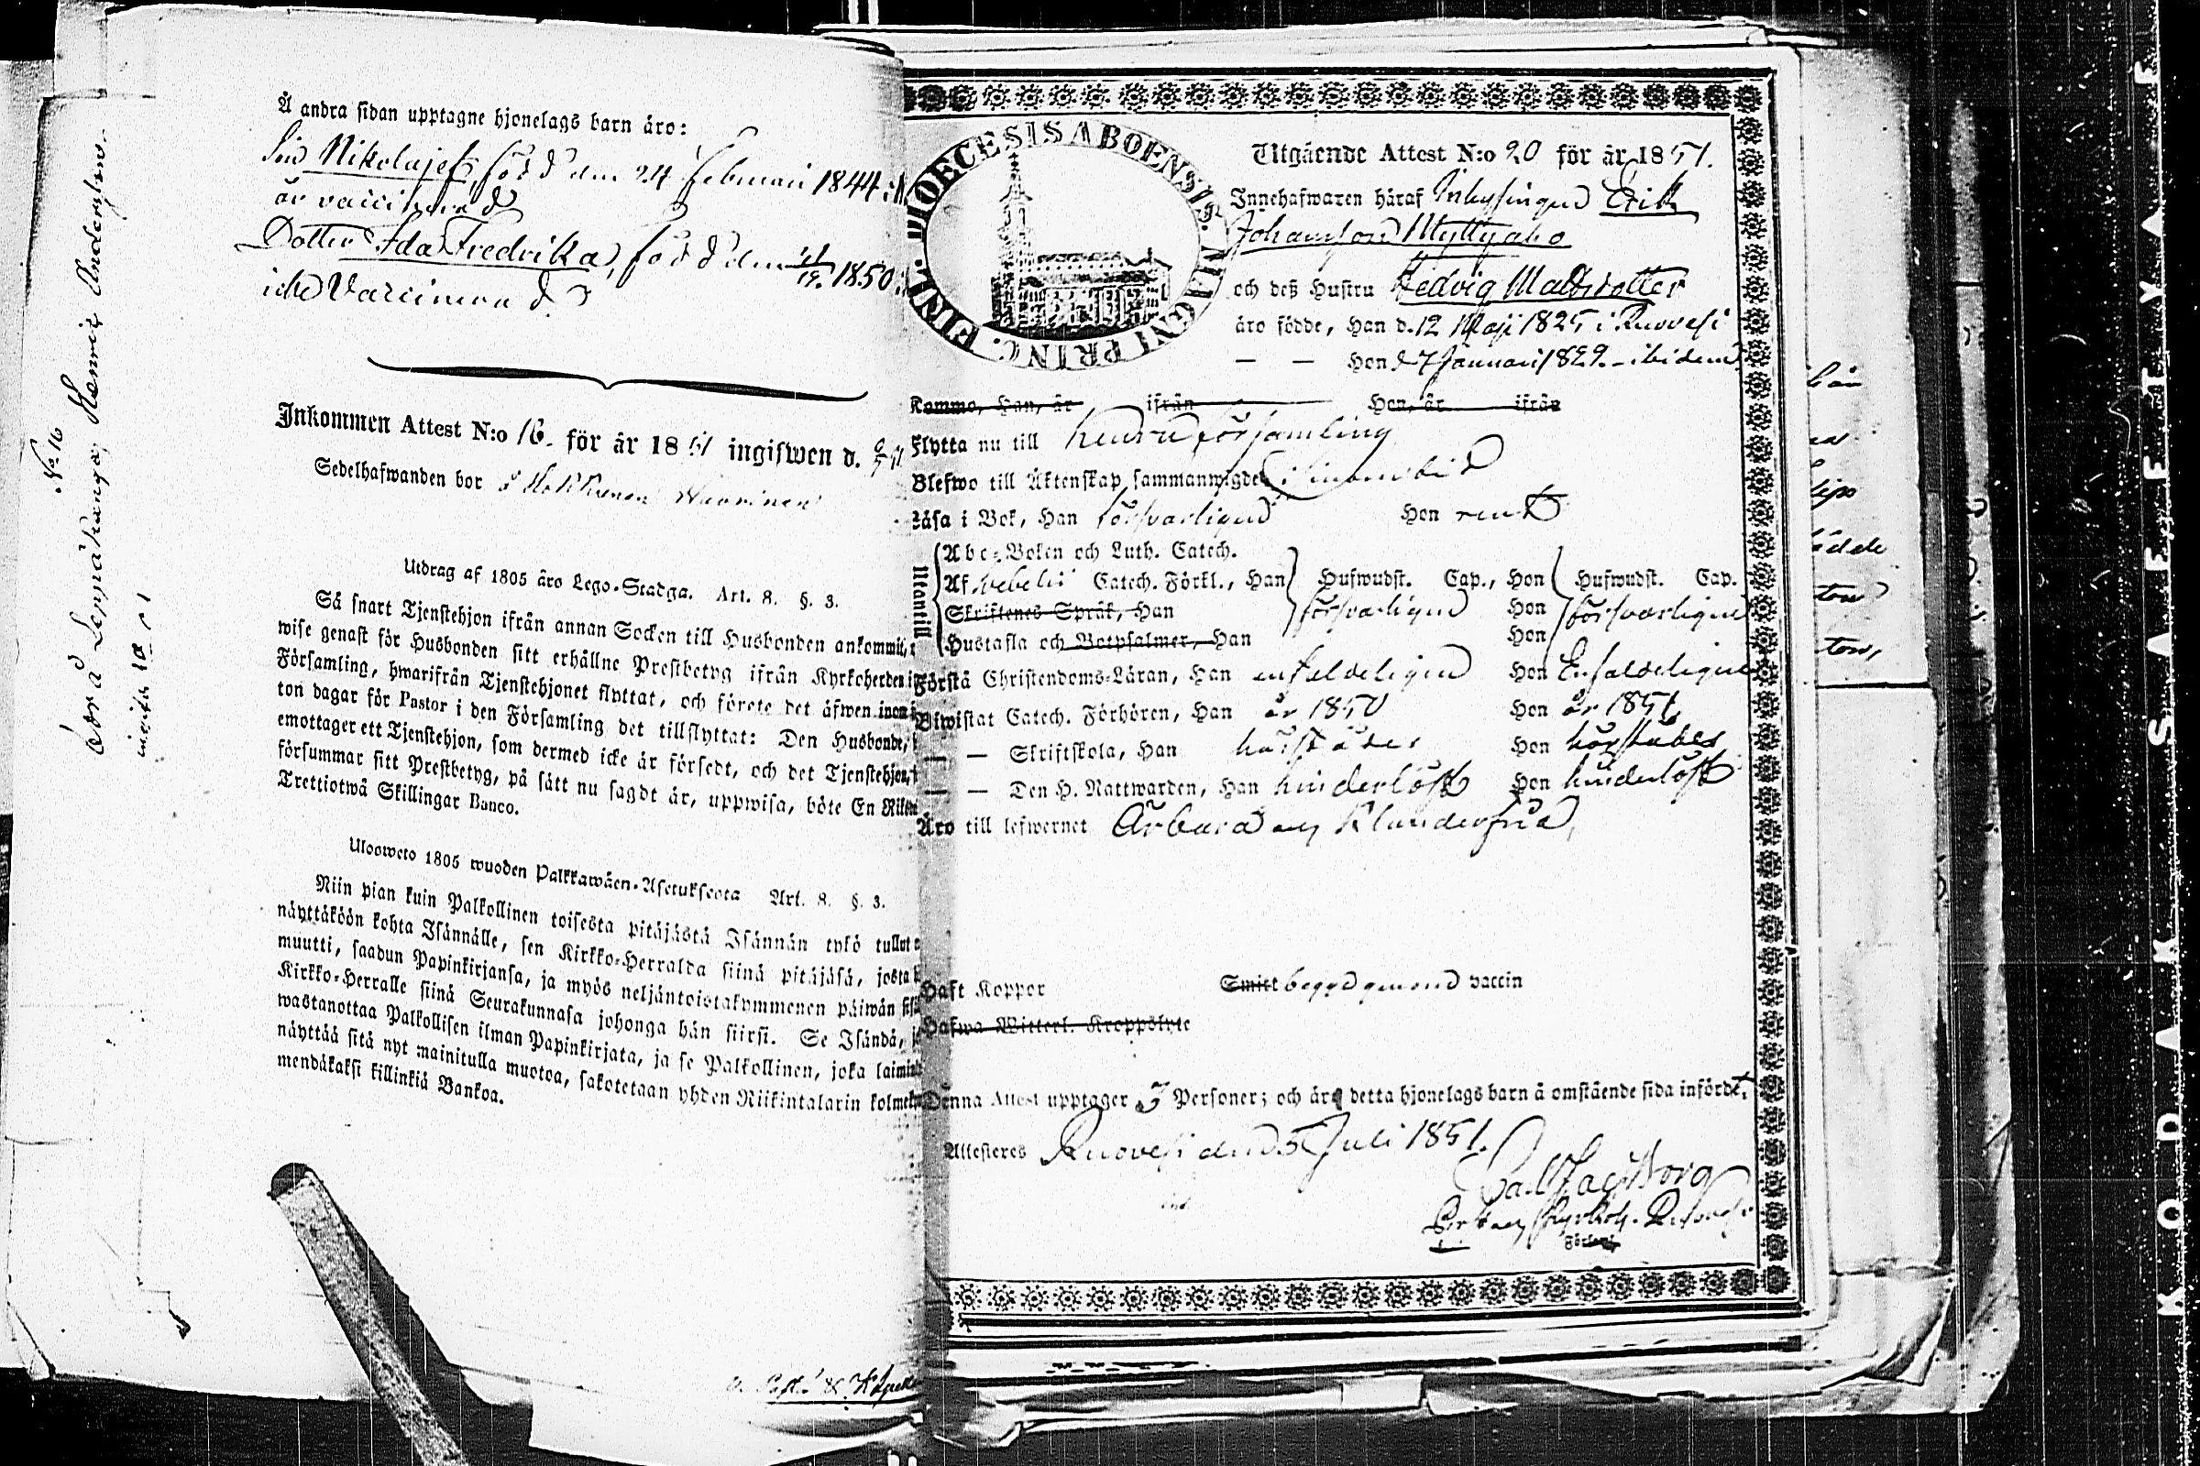 Å andra sidan upptagne hjonelags barn äro:
Son Nikolajef, född den 24 Februari 1844:
är vaccinerad
Dotter Ida Fredrika, född den 1850:
icke Vaccinerad
Inkommen Attest N:o 16. för år 1851 ingifwen d.
Sedelhafwanden bor
Utdrag af 1805 års Lego-Stadga. Art. 8. §. 3.
Så snart Tjenstehjon ifrån annan Socken till Husbonden ankommit,
wise genast för Husbonden sitt erhållne Prestbetyg ifrån Kyrkoherden i
Församling, hwarifrån Tjenstehjonet flyttat, och förete det äfwen inom
ton dagar för Pastor i den Församling det tillflyttat: Den Husbonde,
emottager ett Tjenstehjon, som dermed icke är försedt, och det Tjenstehjon,
försummar sitt Prestbetyg, på sätt nu sagdt är, uppwisa, böte En Riks
Trettiotwå Skillingar Banco.
Uloswето 1805 wuoden Palkkawäen-Asetuksesta Art. 8. §. 3.
Niin pian kuin Palkollinen toisesta pitäjästä Isännän tykö tullut
näyttäköön kohta Isännälle, sen Kirkko-Herralda siinä pitäjäsä, josta
muutti, saadun Papinkirjansa, ja myös neljäntoistakymmenen päiwän sis
Kirkko-Herralle siinä Seurakunnasa johonga hän siirsi. Se Isändä,
wastanottaa Palkollisen ilman Papinkirjata, ja se Palkollinen, joka laimin
näyttää sitä nyt mainitulla muotoa, sakotetaan yhden Riikintalarin kolmek
mendäkaksi killinkiä Bankoa.
N:o 16
Henric Andersson
DIOECESIS ABOENSIS. MAGNI PRINC. FINL.
Utgående Attest N:o 20 för år 1851.
Innehafwaren häraf Inhysingen Erik
Johansson Myllyaho
och deß Hustru Hedvig Matsdotter
äro födde, Han d. 12 Maji 1825 i Ruovesi
— — Hon d 7 Januari 1829 - ibidem
Kommo, Han, år ifrån Hon, år ifrån
Flytta nu till Keuru församling
Blefwo till Äktenskap sammanwigde
Läsa i Bok, Han försvarligen Hon rent
Utantill
Abc-Boken och Luth. Catech.
Af Svebelii Catech. Förkl., Han Hufwudst. Cap., Hon Hufwudst. Cap.
Skriftenes Språk, Han försvarligen Hon försvarligen
Hustafla och Botpsalmer, Han Hon
Förstå Christendoms-Läran, Han enfaldeligen Hon Enfaldeligen
Biwistat Catech. Förhören, Han år 1850 Hon år 1851
— — Skriftskola, Han härstädes Hon härstädes
— — Den H. Nattwarden, Han hinderlöst Hon hinderlöst
Äro till lefwernet Ärbara och Klanderfria,
Haft Koppor Smitt begagnat vaccin
Hafwa Witterl. Kroppslyte
Denna Attest upptager Personer; och äro detta hjonelags barn å omstående sida införde.
Attesteras Ruovesi den 5 Juli 1851.
Borg
Förlam.
KODAK SAFETY